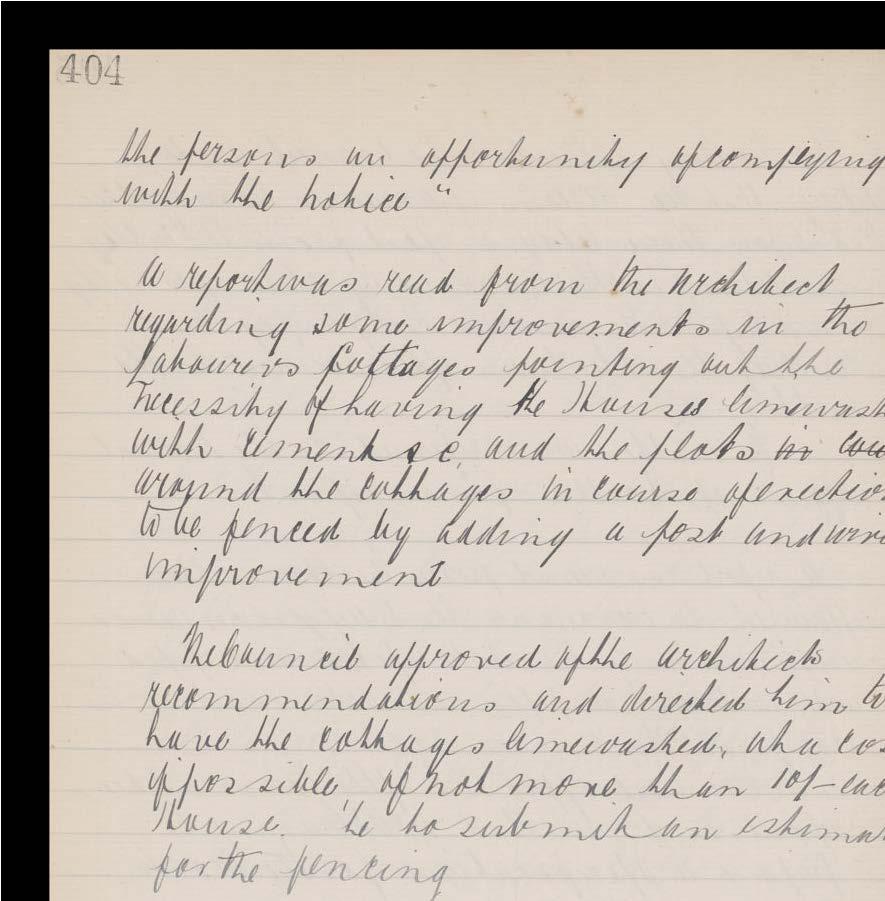 404
the persons an opportunity of complying
with the notice"
A report was read from the Architect
regarding some improvements in the
Labourers Cottages pointing out the
necessity of having the Houses limewash
with cement &c and the plots in cou
around the cottages in course of erection
to be fenced by adding a post and wire
improvement
The Council approved of the architects
recommendations and directed him to
have the cottages limewashed, at a cos
if possible, of not more than 10/- eac
House. He to submit an estima
for the fencing